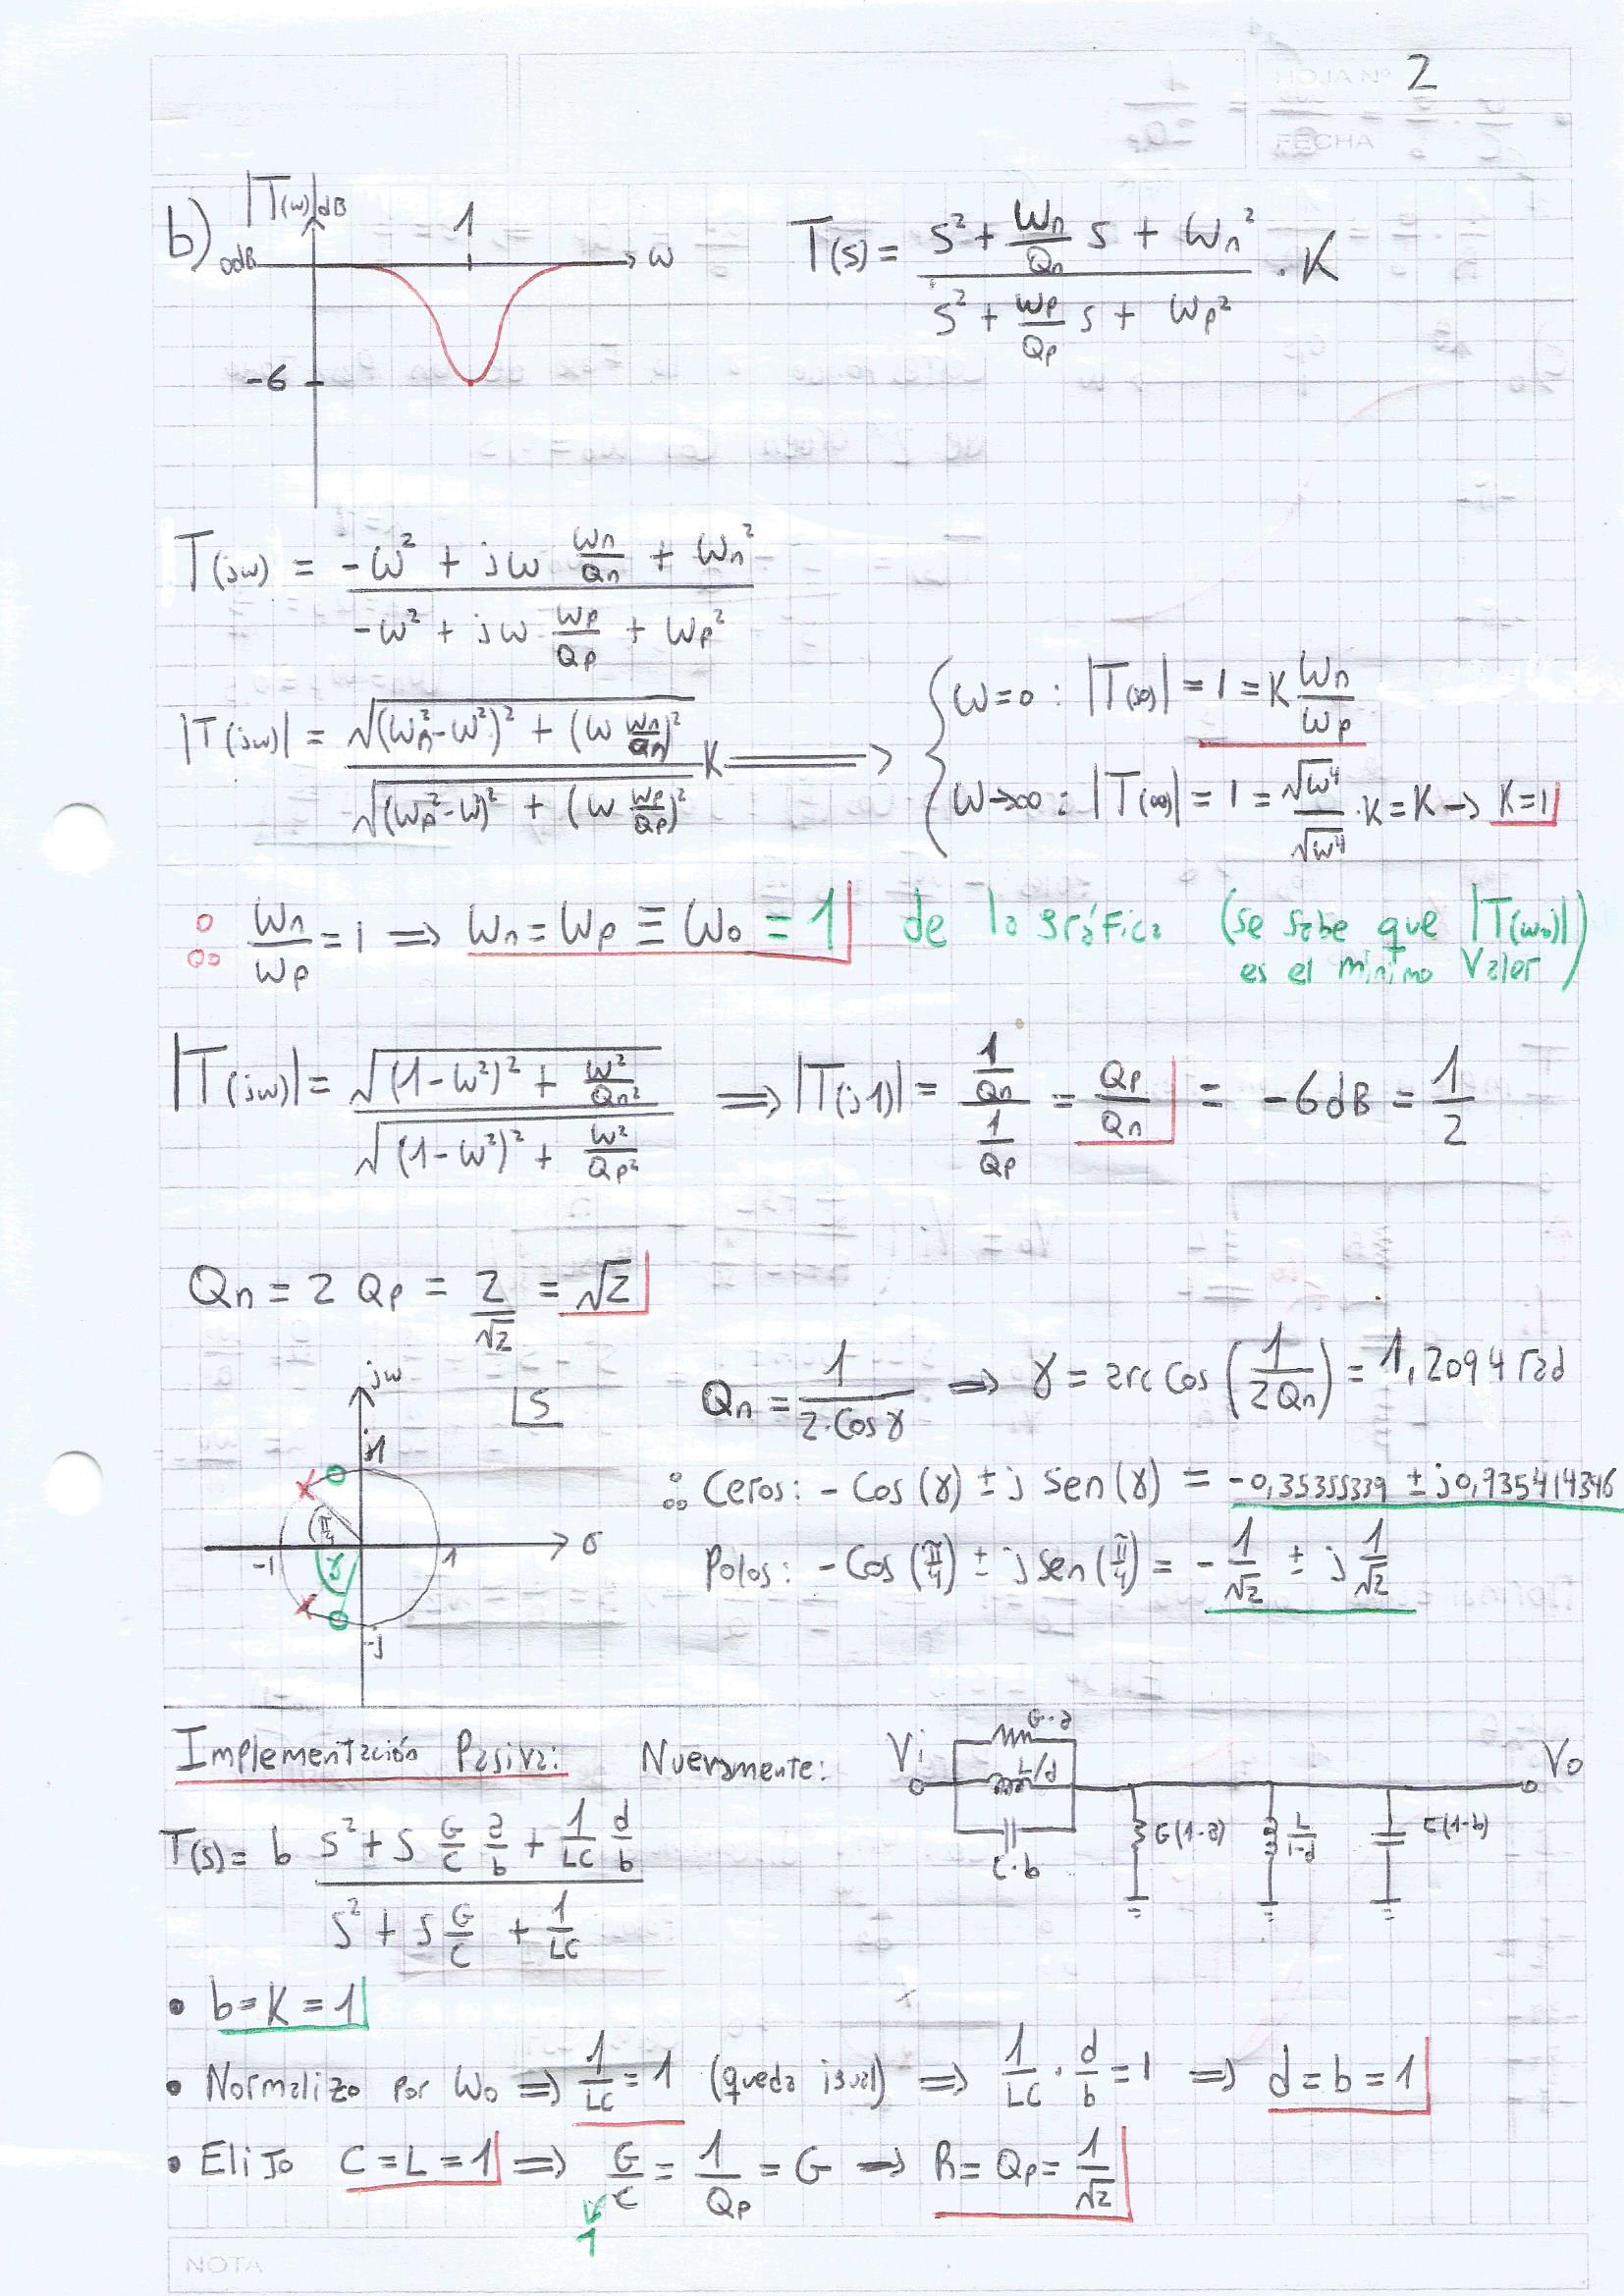 HOJA Nº 2
FECHA
b) |T(ω)|dB
0dB 1 ω
-6
T(s) = (s² + ωn/Qn s + ωn²) / (s² + ωp/Qp s + ωp²) · K
T(jω) = (-ω² + jω ωn/Qn + ωn²) / (-ω² + jω ωp/Qp + ωp²)
|T(jω)| = √((ωn²-ω²)² + (ω ωn/Qn)²) / √((ωp²-ω²)² + (ω ωp/Qp)²) K ⟹
{ ω=0 : |T(j0)| = 1 = K ωn/ωp
ω→∞ : |T(∞)| = 1 = √ω⁴/√ω⁴ · K = K → K=1
∴ ωn/ωp = 1 ⟹ ωn = ωp ≡ ω0 = 1 de la gráfica (se sabe que |T(ω0)| es el mínimo valor)
|T(jω)| = √((1-ω²)² + ω²/Qn²) / √((1-ω²)² + ω²/Qp²) ⟹ |T(j1)| = (1/Qn)/(1/Qp) = Qp/Qn = -6dB = 1/2
Qn = 2 Qp = 2/√2 = √2
jω
S
j1
-1 1 σ
π/4
γ
-j
Qn = 1/(2·cos γ) ⟹ γ = arc cos(1/(2Qn)) = 1,2094 rad
∴ Ceros: -cos(γ) ± j sen(γ) = -0,35355339 ± j0,935414346
Polos: -cos(π/4) ± j sen(π/4) = -1/√2 ± j 1/√2
Implementación Pasiva: Nuevamente:
Vi G·a L/d C·b G(1-a) L/(1-d) C(1-b) Vo
T(s) = b (s² + s G/C a/b + 1/LC d/b) / (s² + s G/C + 1/LC)
• b = K = 1
• Normalizo por ω0 ⟹ 1/LC = 1 (queda igual) ⟹ 1/LC · d/b = 1 ⟹ d = b = 1
• Elijo C = L = 1 ⟹ G/C = 1/Qp = G → R = Qp = 1/√2
1
NOTA